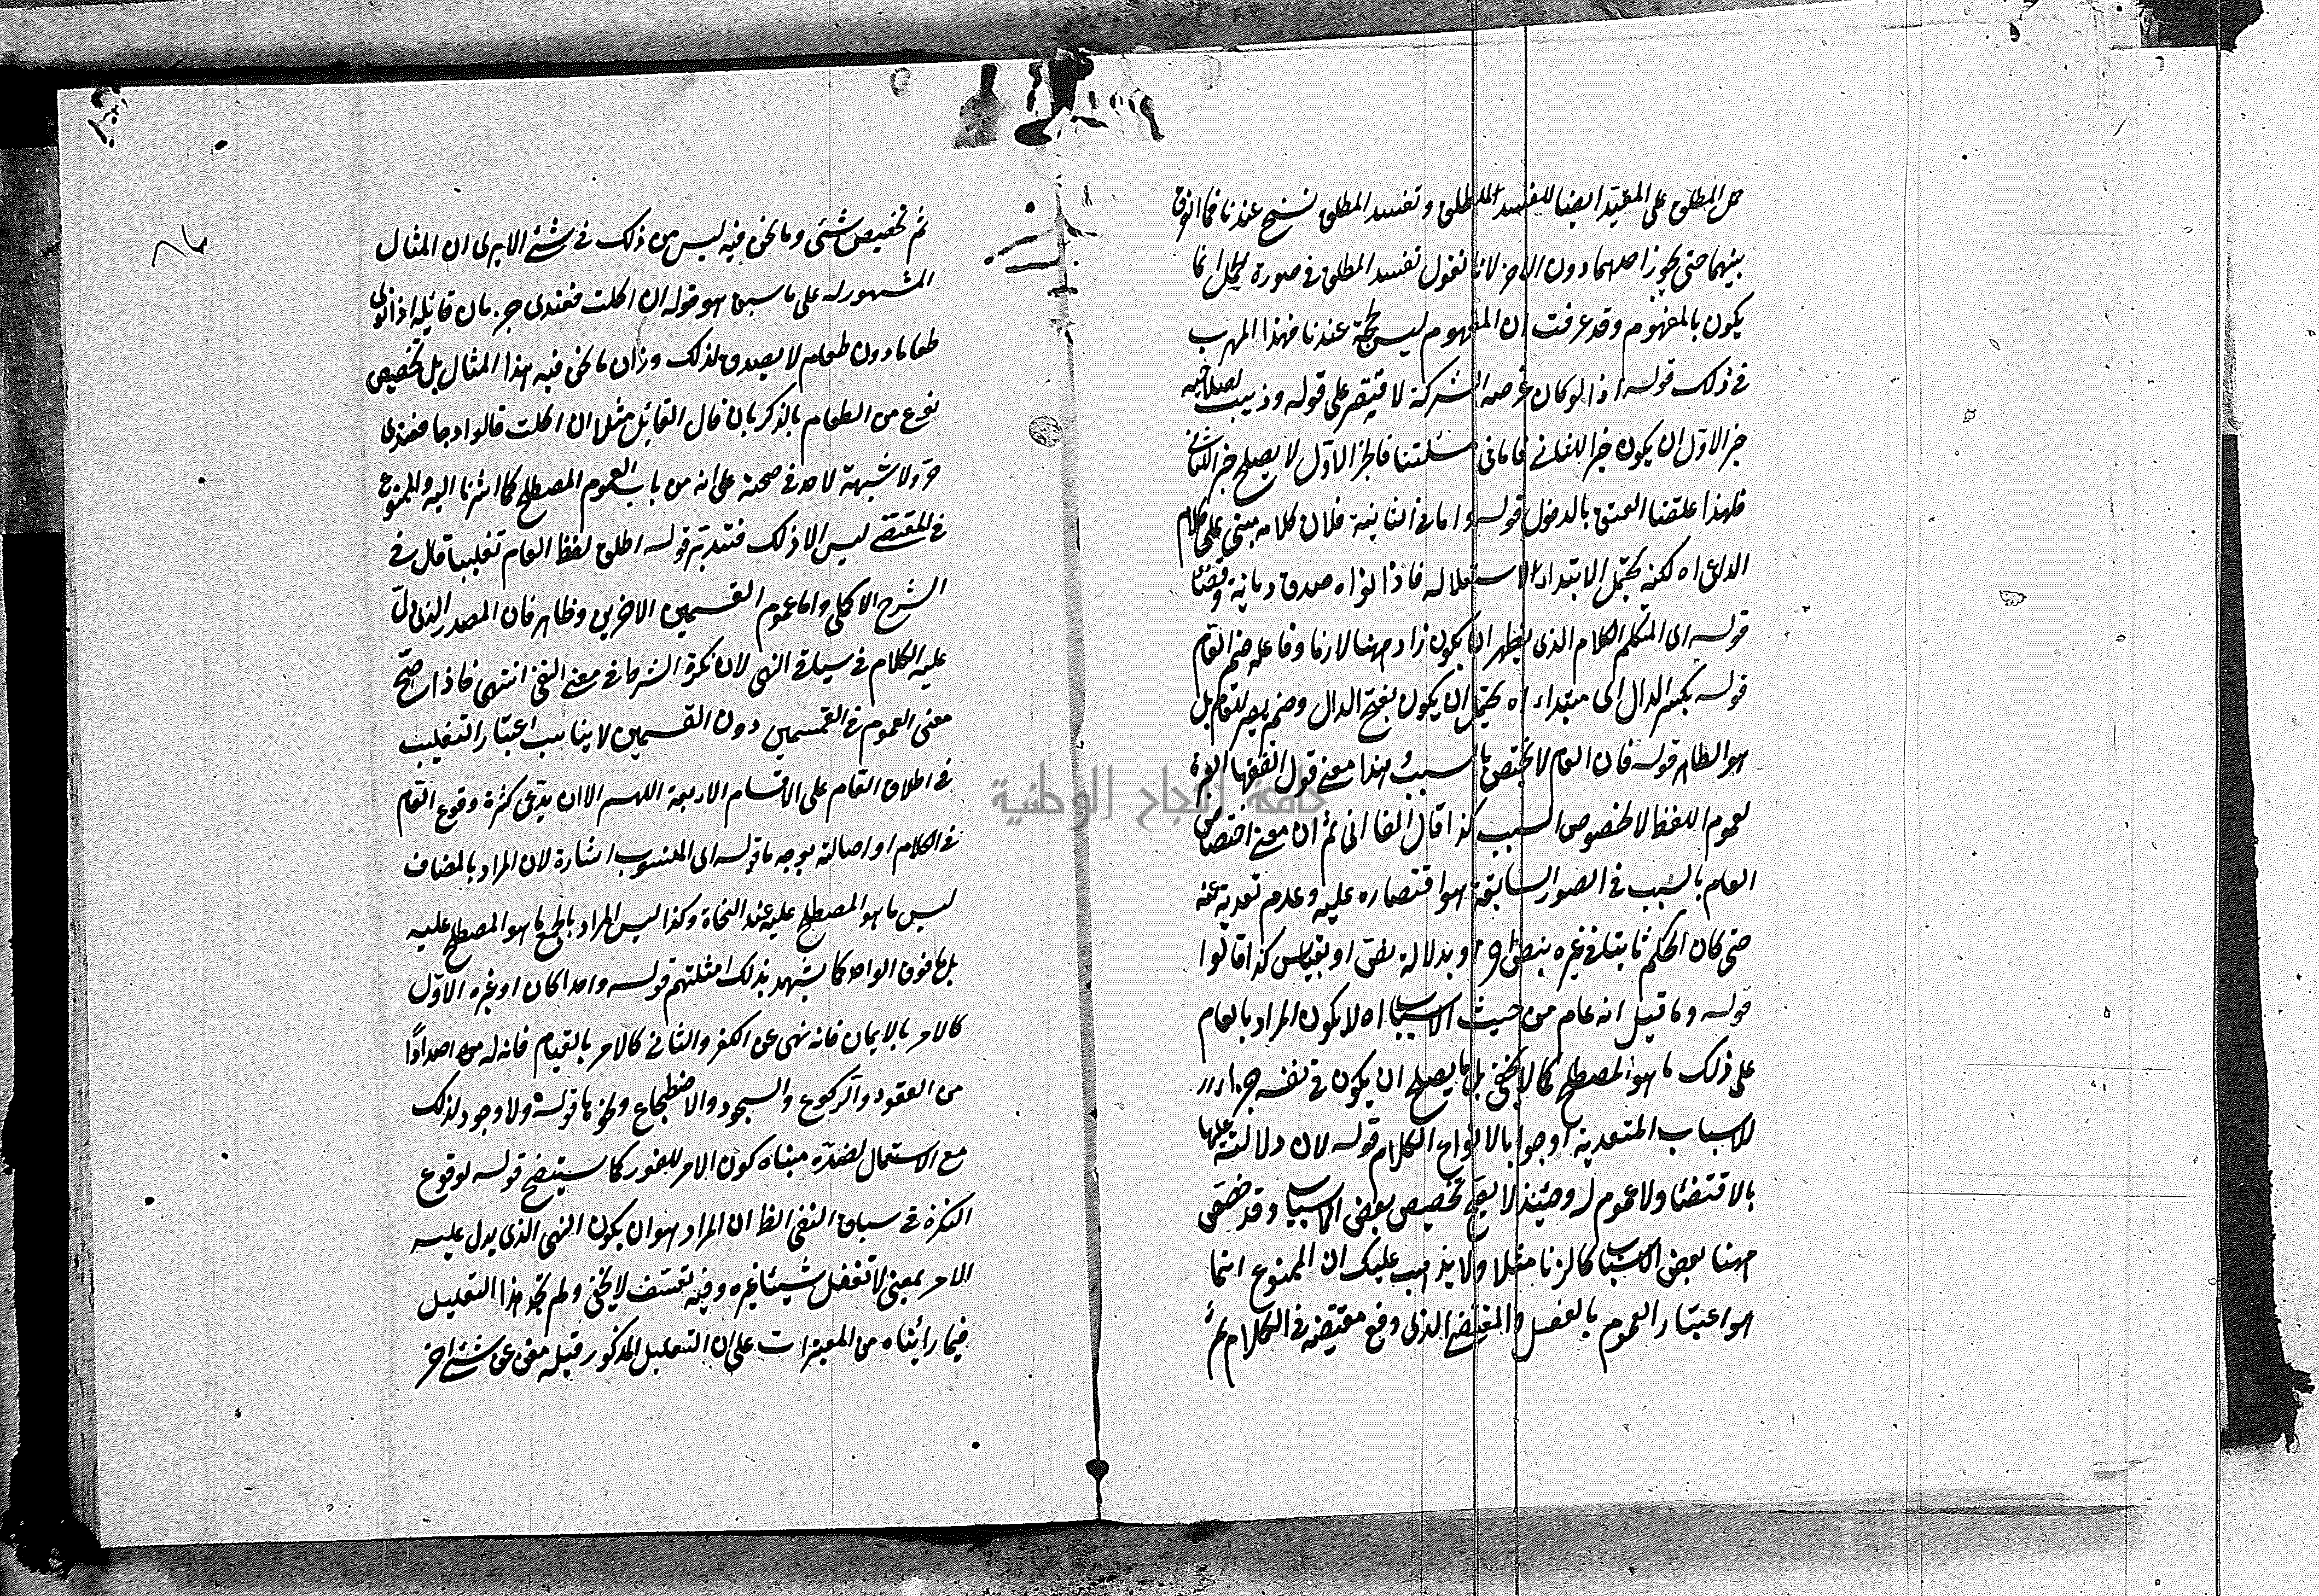 حمل المطلق على المقيد ايضا تقييد المطلق وتقييد المطلق نسخ عندنا فما الفرق
بينهما حتى يجوز احدهما دون الاخر لانا نقول تقييد المطلق في صورة الحمل انما
يكون بالمفهوم وقد عرفت ان المفهوم ليس بحجة عندنا فهذا المهرب
في ذلك قوله اذ لو كان غرضه الشركة لاقتصر على قوله وزينب لصلاحية
خبر الاول ان يكون خبرا للثاني فاما في مسئلتنا فالخبر الاول لا يصلح خبر الثاني
فلهذا علقنا العتق بالدخول قوله واما في الثانية فلان كلامه مبني على كلام
الداعي اه لكنه يحتمل الابتداء والاستقلال فاذا نواه صدق ديانة وقضاء
قوله اى المتكلم الكلام الذى يظهر ان يكون زاد ههنا لازما وفاعله ضمير العام
قوله بكسر الدال اى مبتداء اه يحتمل ان يكون بفتح الدال وضميره للعام بل
هو الظاهر قوله فان العام لا يختص بالسبب هذا معنى قول الفقهاء العبرة
لعموم اللفظ لا لخصوص السبب كذا قال القاانى ثم ان معنى اختصاص
العام بالسبب في الصور السابقة هو اقتصاره عليه وعدم تعديته عنه
حتى كان الحكم ثابتا في غيره بنص اخر او بدلالة نص او بقياس كذا قالوا
قوله وما قيل انه عام من حيث الاسباب اه لا يكون المراد بالعام
على ذلك ما هو المصطلح كما لا يخفى بل ما يصلح ان يكون في نفسه جزاء
للاسباب المتعدية اوجوابا لانواع الكلام قوله لان دلالته عليها
بالاقتضاء ولا عموم له وحينئذ لا يقع تخصيص بعض الاسباب وقد خص
ههنا بعض الاسباب كالزنا مثلا ولا يذهب عليك ان الممنوع انما
هو اعتبار العموم بالفعل والمقتضى الذى وقع مقتضى في الكلام ثم
ثم تخصيص شئ وما نحن فيه ليس من ذلك في شئ الا يرى ان المثال
المشهور له على ما سبق هو قوله ان اكلت فعندى حر فان قائله اذا نوى
طعاما دون طعام لا يصدق لذلك وزان ما نحن فيه هذا المثال بل تخصيص
نوع من الطعام بالذكر بان قال القائل مثلا ان اكلت فعندى
حر ولا شبهة لاحد في صحته على انه من باب العموم المصطلح كما اشرنا اليه والممنوع
في المقتضى ليس الا ذلك فتدبر قوله اطلق لفظ العام تغليبا قال في
الشرح الاكملى واما عموم القسمين الاخرين وظاهر فان المصدر الذى دل
عليه الكلام في سياق النهى لان نكرة الشرط في معنى النفى انتهى فاذا صح
معنى العموم في القسمين دون القسمين لا يناسب اعتبار التغليب
في اطلاق العام على الاقسام الاربعة اللهم الا ان يدعى كثرة وقوع العام
في الكلام او اصالته بوجه ما قوله اى المنسوب اشارة لان المراد بالمضاف
ليس ما هو المصطلح عليه عند النحاة وكذا ليس المراد بالجمع ما هو المصطلح عليه
بل ما فوق الواحد كما يشهد بذلك امثلتهم قوله واحدا كان او غيره الاول
كالامر بالايمان فانه نهى عن الكفر والثانى كالامر بالقيام فانه له اضدادا
من القعود والركوع والسجود والاضطجاع ونحوها قوله ولا وجود لذلك
مع الاستعمال لضده مبناه كون الامر للفور كما سيتضح قوله لوقوع
النكرة في سياق النفى الظ ان المراد هو ان يكون النهى الذى يدل عليه
الامر بمعنى لا تفعل شيئا غيره وفيه تعسف لا يخفى ولم نجد هذا التعليل
فيما رأيناه من المعتبرات على ان التعليل المذكور قبله مغن عن شئ اخر
جامعة النجاح الوطنية